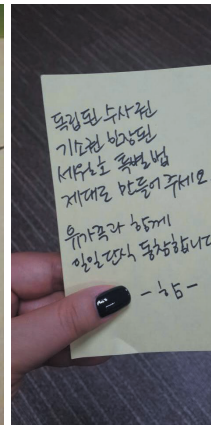 독립된 수사권
기소권 보장된
세월호 특별법
제대로 만들어 주세요
유가족과 함께
일일단식 동참합니다
-함-